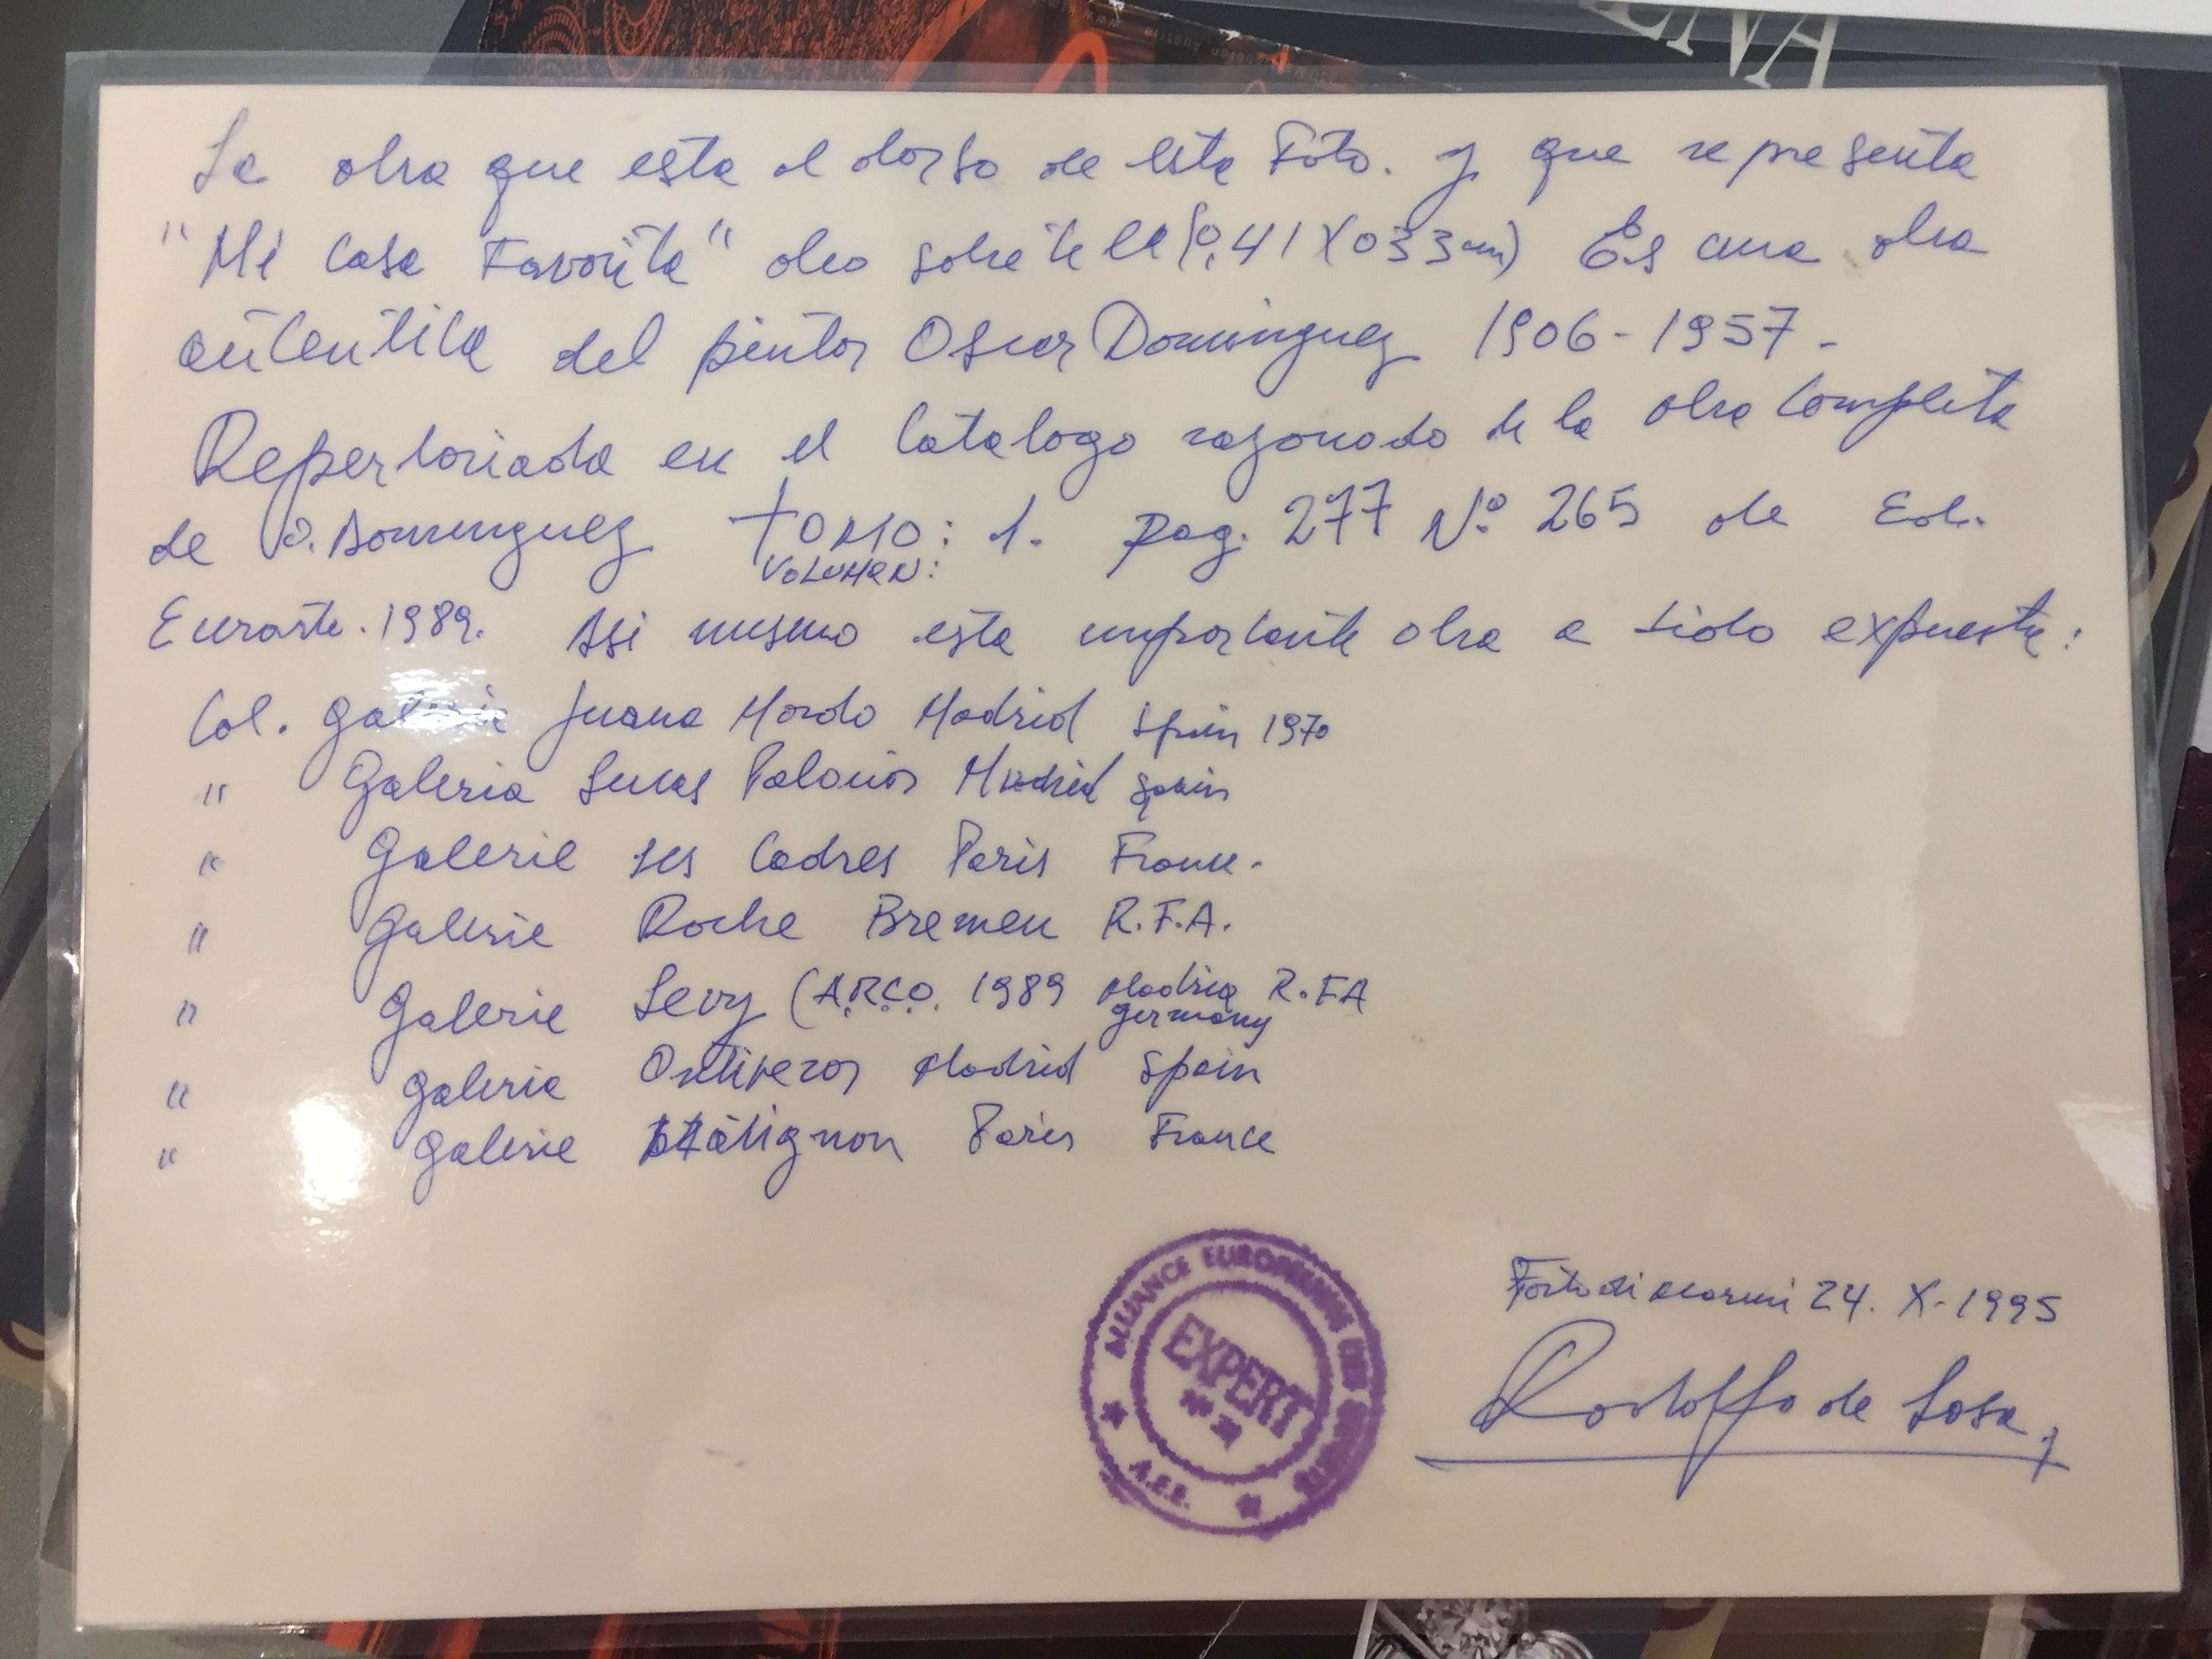 ENA
La obra que esta al dorso de esta Foto. y que representa
"Mi Casa Favorita" oleo sobre tela (0,41 X 033 cm) Es una obra
autentica del pintor Oscar Dominguez 1906-1957-
Repertoriada en el Catalogo razonado de la obra Completa
de O. Dominguez TOMO: 1. pag. 277 Nº 265 de Ed.
VOLUMEN:
Eurarte. 1989. Asi mismo esta importante obra a sido expuesta:
Col. Galeria Juana Mordo Madrid Spain 1970
" Galeria Lucas Palomos Madrid Spain
" Galerie les Cadres Paris France.
" Galerie Roche Bremen R.F.A.
" Galerie Levy (A.R.C.O. 1989 Madrid R.FA
germany
" galeria Ontiveros Madrid Spain
" Galerie Matignon Paris France
ALLIANCE EUROPEENNE DES EXPERTS
EXPERT
A.E.E.
24. X-1995
Rodolffo de Sosa